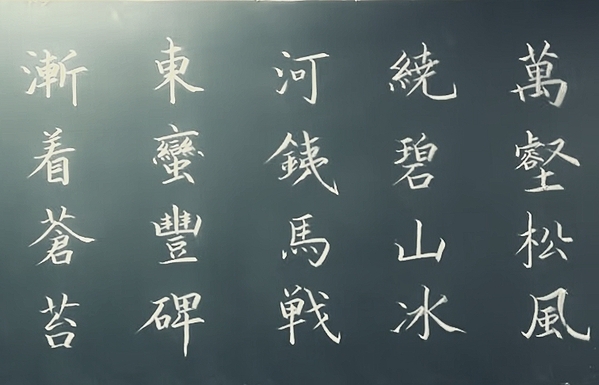 萬壑松風
繞碧山冰
河銕馬戦
東蠻豐碑
漸着蒼苔